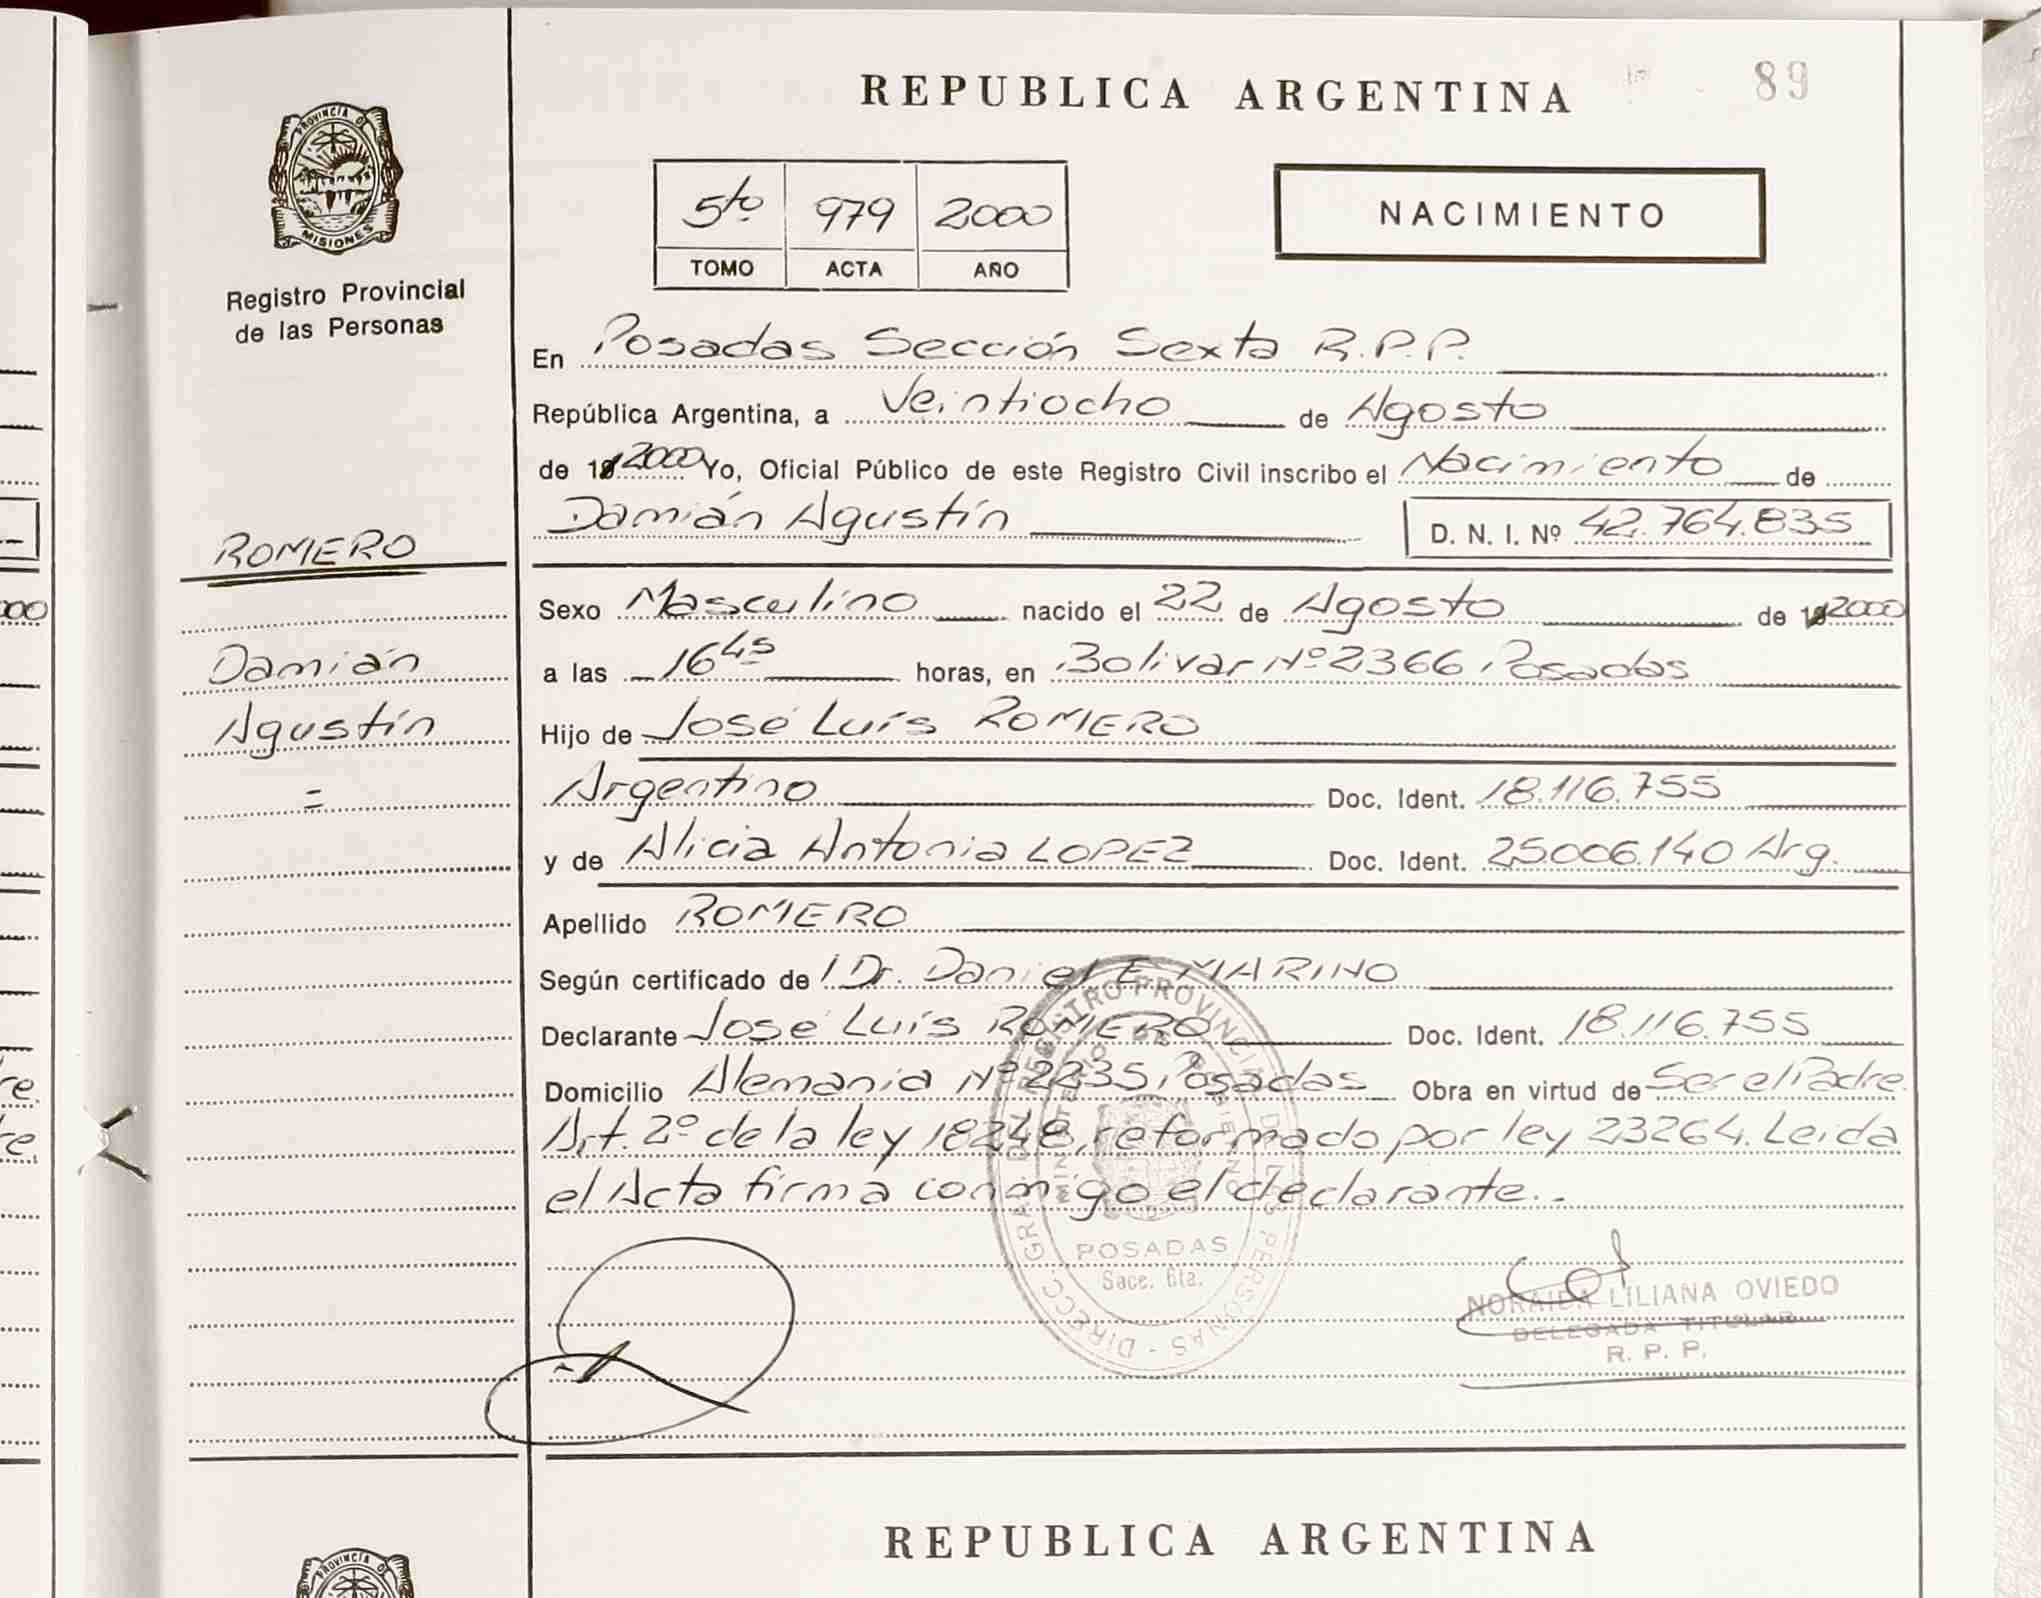 REPUBLICA ARGENTINA
89
PROVINCIA DE
MISIONES
Registro Provincial
de las Personas
5to 979 2000
TOMO ACTA AÑO
NACIMIENTO
En Posadas Sección Sexta R.P.P.
República Argentina, a Veintiocho de Agosto
de 2000 Yo, Oficial Público de este Registro Civil inscribo el Nacimiento de
Damián Agustín D. N. I. Nº 42.764.835
ROMERO
Damián
Agustín
=
Sexo Masculino nacido el 22 de Agosto de 2000
a las 16 45 horas, en Bolivar Nº 2366, Posadas
Hijo de José Luís ROMERO
Argentino Doc. Ident. 18.116.755
y de Alicia Antonia LOPEZ Doc. Ident. 25.006.140 Arg.
Apellido ROMERO
Según certificado de Dr. Daniel E. MARINO
Declarante José Luís ROMERO Doc. Ident. 18.116.755
Domicilio Alemania Nº 2235, Posadas Obra en virtud de Ser el Padre.
Art. 2º de la ley 18248, reformado por ley 23264. Leida
el Acta firma conmigo el declarante..
DIRECC. GRAL. DEL REGISTRO PROVINCIAL DE LAS PERSONAS
MINISTERIO DE GOBIERNO
POSADAS
Sacc. 6ta.
NORAIDA LILIANA OVIEDO
DELEGADA TITULAR
R. P. P.
REPUBLICA ARGENTINA
PROVINCIA DE